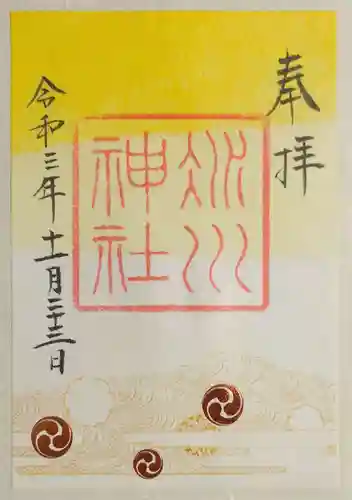 奉拝
冰川
神社
令和三年十一月二十三日